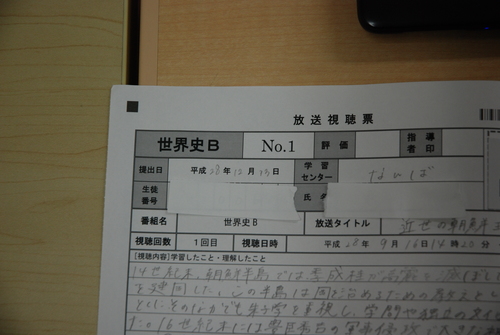 放送視聴票
世界史B No.1 評価 指導者印
提出日 平成28年12月13日 学習センター なんば
生徒番号 氏名
番組名 世界史B 放送タイトル 近世の朝鮮半
視聴回数 1回目 視聴日時 平成28年9月16日14時20分
[視聴内容]学習したこと・理解したこと
14世紀末、朝鮮半島では李成桂が高麗を滅ぼし
この半島は国を治めるための
朱子学を重視し、学問や
16世紀末には豊臣秀吉の